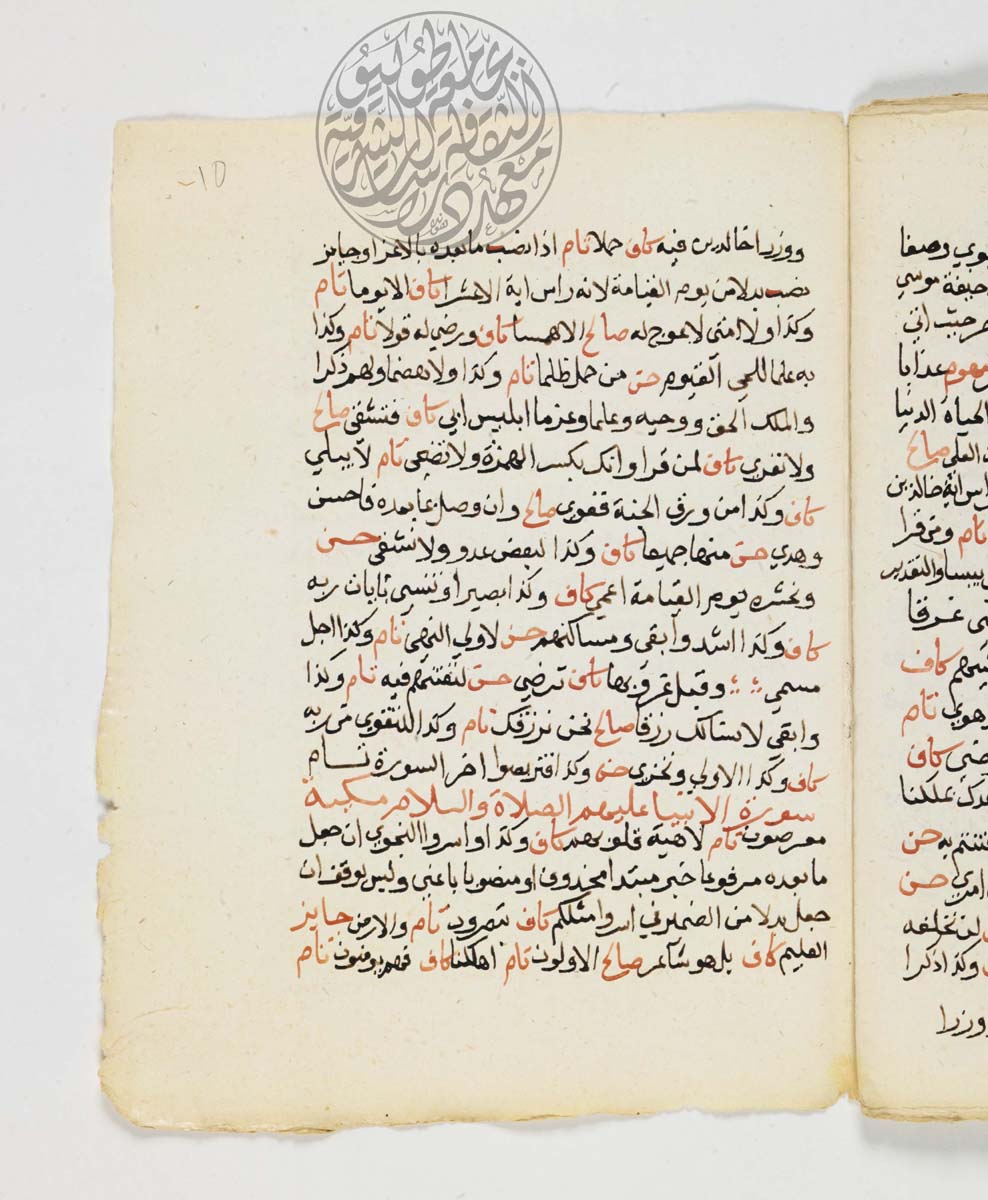 ووزرا خالدين فيه كاف حملا تام اذا نصب ما بعده بالاغرا وجايز
نصب بدلا من يوم القيامة لانه راس اية الاعشرا كاف الا يوما تام
وكذا ولا امتى لا عوج له صالح الا همسا كاف ورضي له قولا تام وكذا
به علما للحي القيوم حسن من حمل ظلما تام وكذا ولا هضما ولهم ذكرا
والملك الحق ووحيه وعلما وعزما ابليس ابي كاف فتشقى صالح
ولا تعري كاف لمن قرا وانك بكسر الهمزة ولا تضحى تام لا يبلي
كاف وكذا من ورق الجنة فغوي صالح وان وصل بما بعده فاحسن
وهدي حسن منها جميعا كاف وكذا لبعض عدو ولا تشقى حسن
ونحشره يوم القيامة اعمي كاف وكذا بصيرا وتنسي بايات ربه
كاف وكذا اشد وابقى ومساكنهم حسن لاولي النهى تام وكذا اجل
مسمي وقبل غروبها كاف ترضي حسن لنفتنهم فيه تام وكذا
وابقي لا نسالك رزقا صالح نحن نرزقك تام وكذا للتقوي من ربه
كاف وكذا الاولي ونخزي حسن وكذا فتربصوا اخر السورة تام
سورة الانبيا عليهم الصلاة والسلام مكية
معرضون تام لاهية قلوبهم كاف وكذا واسروا النجوي ان جعل
ما بعده مرفوعا خبر مبتدا محذوف او منصوبا باعني وليس بوقف ان
جعل بدلا من الضمير في اسروا مثلكم كاف تبصرون تام والارض جايز
العليم كاف بل هو شاعر صالح الاولون تام اهلكناها كاف افهم يومنون تام
يوي وصفا
خيفة موسي
حيث اتي
عذابا
الحياة الدنيا
العلي صالح
راس اية خالدين
تام ومن قرا
يبسا والتقدير
كاف
وهوي تام
كاف
بملكنا
فتنتم به حسن
امري حسن
لن تخلفه
وكذا ذكرا
ووزرا
معهد الثقافة والدراسات الشرقية جامعة طوكيو